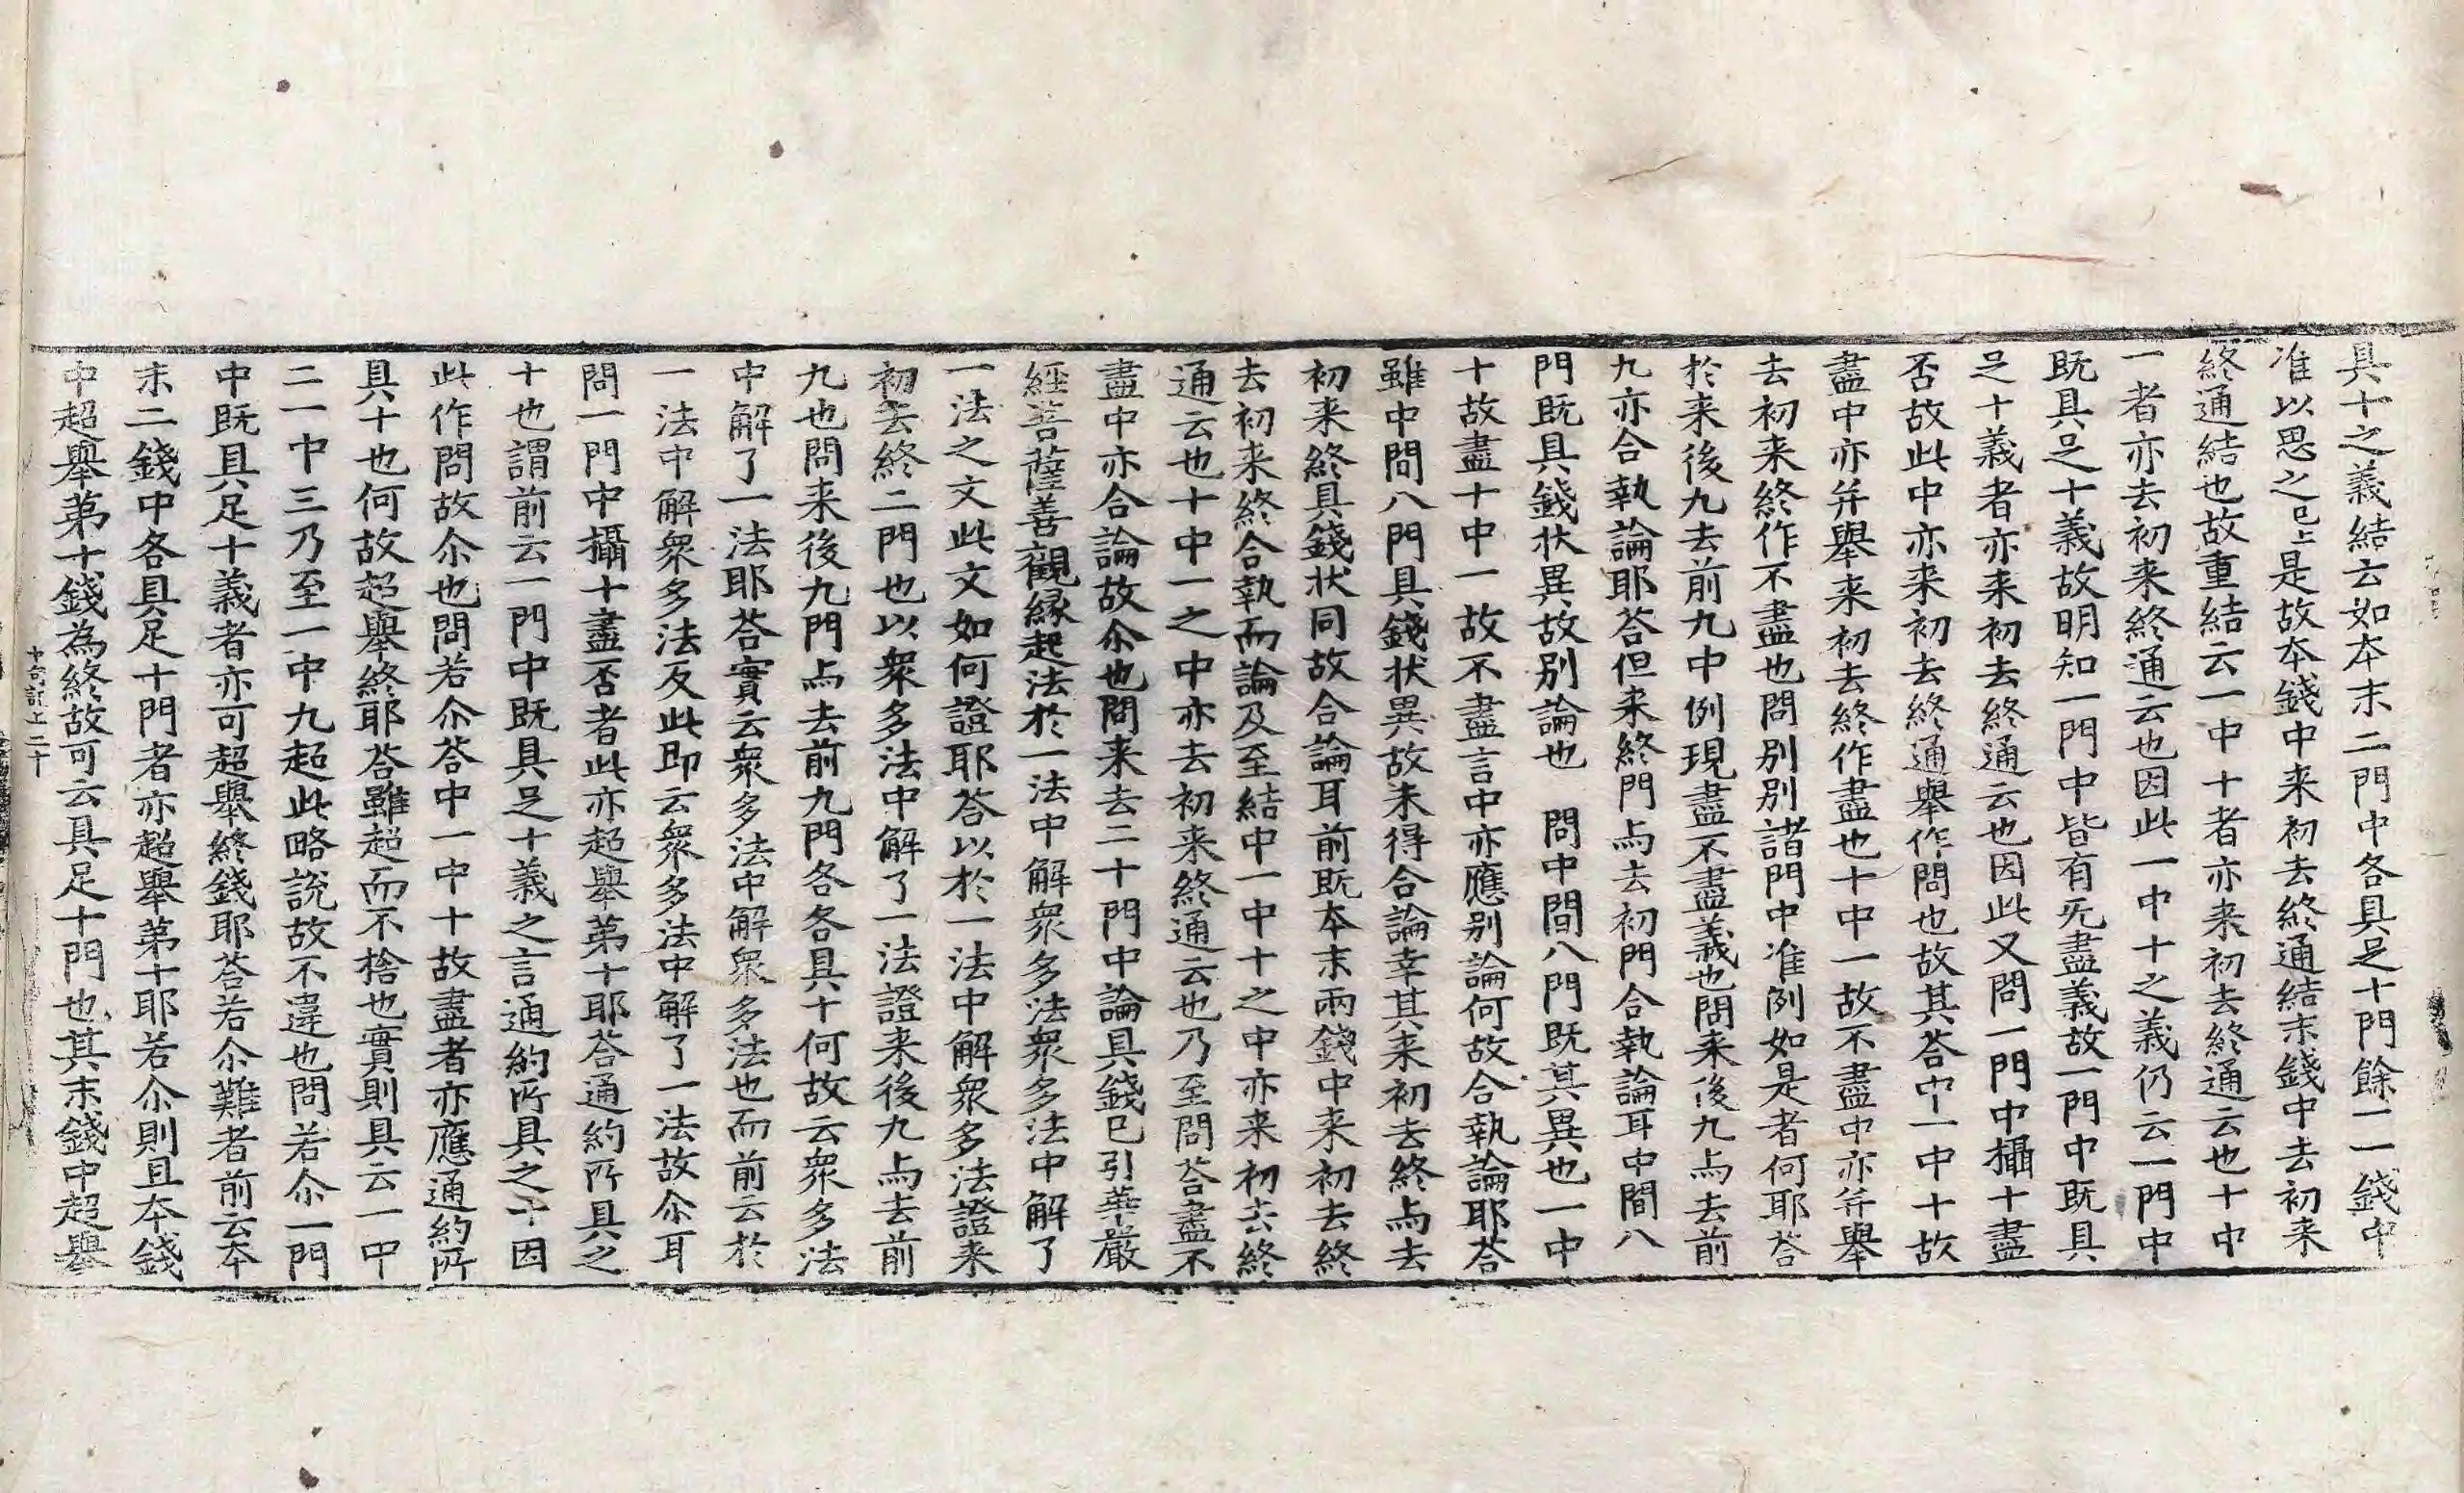 具十之義結云如本末二門中各具足十門餘一一錢中
准以思之已上是故本錢中来初去終通結末錢中去初来
終通結也故重結云一中十者亦来初去終通云也十中
一者亦去初来終通云也因此一中十之義仍云一門中
既具足十義故明知一門中皆有无盡義故一門中既具
足十義者亦来初去終通云也因此又問一門中攝十盡
否故此中亦来初去終通舉作問也故其荅中一中十故
盡中亦并舉来初去終作盡也十中一故不盡中亦并舉
去初来終作不盡也問別別諸門中准例如是者何耶荅
於来後九去前九中例現盡不盡義也問来後九与去前
九亦合執論耶荅但来終門与去初門合執論耳中間八
門既具錢状異故别論也 問中間八門既其異也一中
十故盡十中一故不盡言中亦應别論何故合執論耶荅
雖中間八門具錢状異故未得合論幸其来初去終与去
初来終具錢状同故合論耳前既本末兩錢中来初去終
去初来終合執而論及至結中一中十之中亦来初去終
通云也十中一之中亦去初来終通云也乃至問荅盡不
盡中亦合論故尒也問来去二十門中論具錢已引華嚴
經菩薩善觀緣起法於一法中解衆多法衆多法中解了
一法之文此文如何證耶荅以於一法中解衆多法證来
初去終二門也以衆多法中解了一法證来後九与去前
九也問来後九門与去前九門各各具十何故云衆多法
中解了一法耶荅實云衆多法中解衆多法也而前云於
一法中解衆多法反此即云衆多法中解了一法故尒耳
問一門中攝十盡否者此亦超舉苐十耶荅通約所具之
十也謂前云一門中既具足十義之言通約所具之十因
此作問故尒也問若尒荅中一中十故盡者亦應通約所
具十也何故超舉終耶荅雖超而不捨也實則具云一中
二一中三乃至一中九超此略說故不違也問若尒一門
中既具足十義者亦可超舉終錢耶荅若尒難者前云本
末二錢中各具足十門者亦超舉苐十耶若尒則且本錢
中超舉苐十錢為終故可云具足十門也其末錢中超舉
十句記上二十